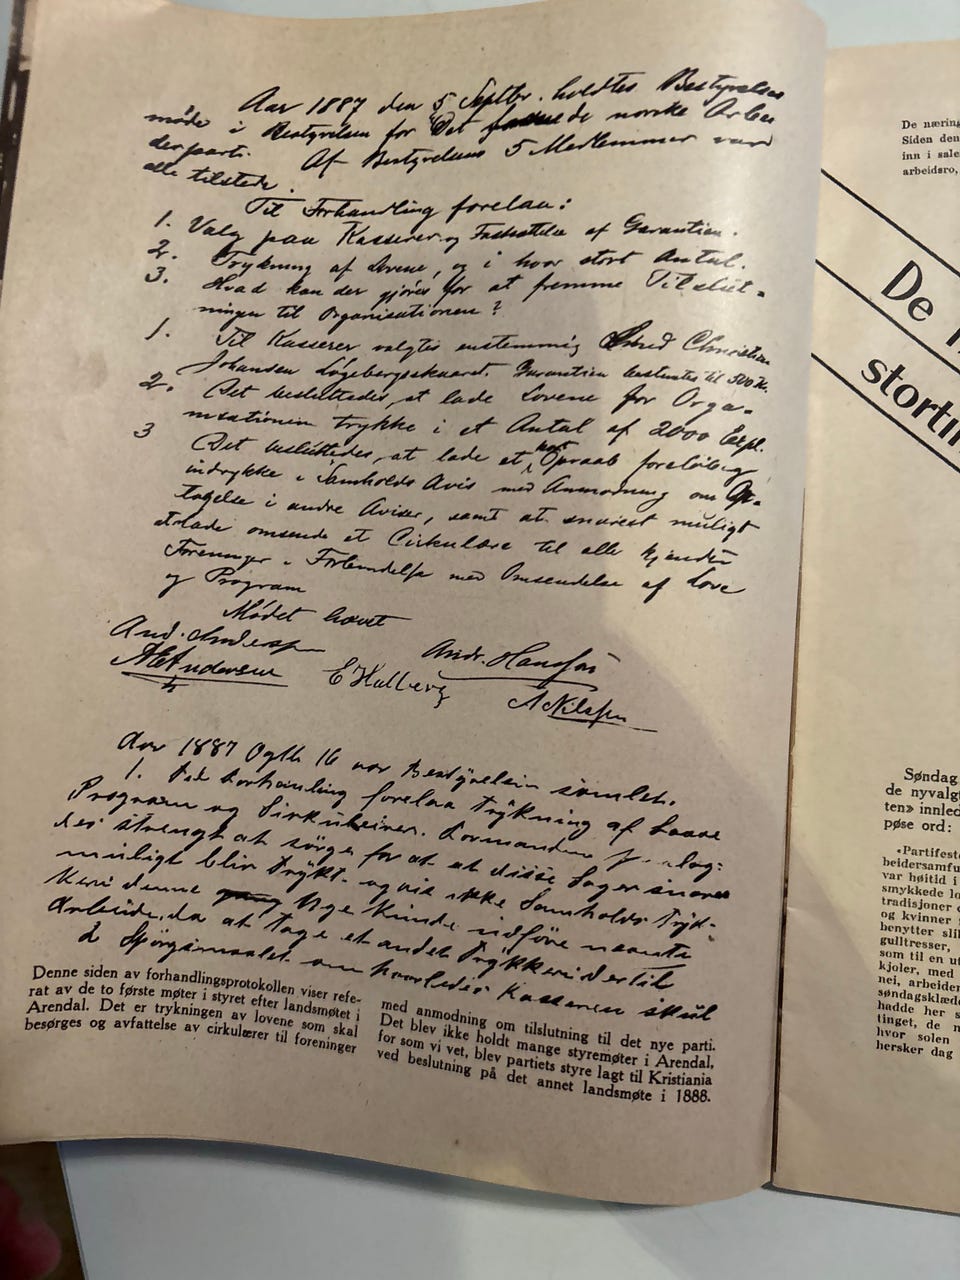 Aar 1887 den 5 Septbr. holdtes Bestyrelses
møde i Bestyrelsen for "Det norske Arbei
derparti. Af Bestyrelsens 5 Medlemmer var
alle tilstede.
Til Forhandling forelaa:
1. Valg paa Kasserer og Fastsættelse af Garantien.
2. Trykning af Lovene, og i hvor stort Antal.
3. Hvad kan der gjöres for at fremme Tilslut-
ningen til Organisationen?
1. Til Kasserer valgtes enstemmig Christian
Johansen Garantien bestemtes til 500 Kr.
2. Det besluttedes, at lade Lovene for Orga-
nisationen trykke i et Antal af 2000 Expl.
3 Det besluttedes, at lade et kort Opraab foreløbig
indrykke i Samholds Avis med Anmodning om Op-
tagelse i andre Aviser, samt at snarest muligt
at lade omsende et Cirkulære til alle kjendte
Foreninger i Forbindelse med Omsendelse af Love
og Program
Mødet hævet
And. Andersen Andr. Hansson
Andersen E Hallberg A Nilssen
Aar 1887 16 var Bestyrelsen samlet.
1. Til Forhandling forelaa Trykning af Love
Program og Formanden
des strengt at sörge for at at disse Sager snarest
muligt blir Trykt og vis ikke Samholds Tryk-
keri denne Uge Kunde udföre nævnte
Arbeide, da at tage et andet Trykkeri dertil
2 Spörgsmaalet om hvorledes Kasseren skul
Denne siden av forhandlingsprotokollen viser refe-
rat av de to første møter i styret efter landsmøtet i
Arendal. Det er trykningen av lovene som skal
besørges og avfattelse av cirkulærer til foreninger
med anmodning om tilslutning til det nye parti.
Det blev ikke holdt mange styremøter i Arendal,
for som vi vet, blev partiets styre lagt til Kristiania
ved beslutning på det annet landsmøte i 1888.
De næring
Siden den
inn i sale
arbeidsro,
De
stortin
Søndag
de nyvalgt
ten» innled
pøse ord:
«Partifest
beidersamfu
var høitid i
smykkede lo
tradisjoner
og kvinner
benytter slik
gulltresser,
som til en ut
kjoler, med
nei, arbeider
søndagsklæde
hadde her s
tinget, de n
hvor solen
hersker dag